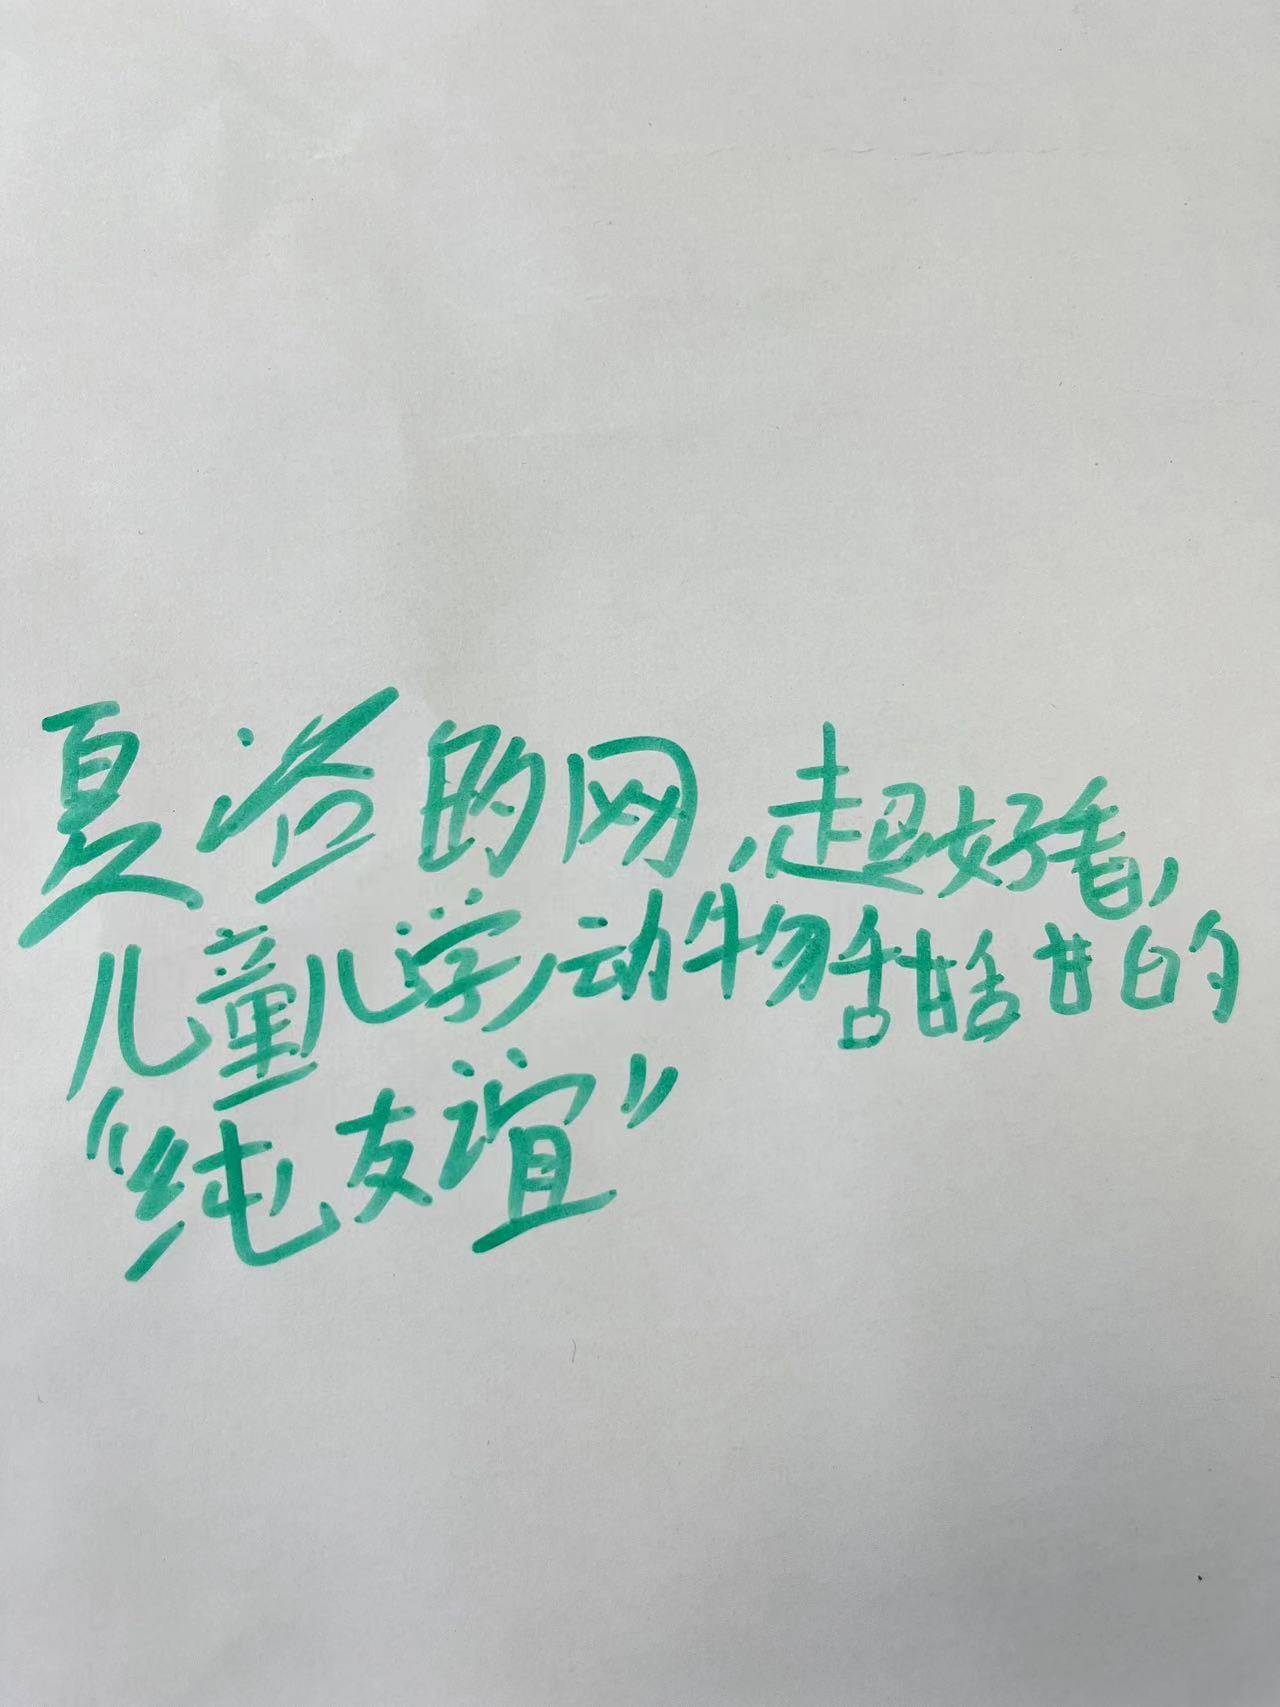 夏洛的网,超好看,
儿童儿学,动物甜甜的
“纯友谊”